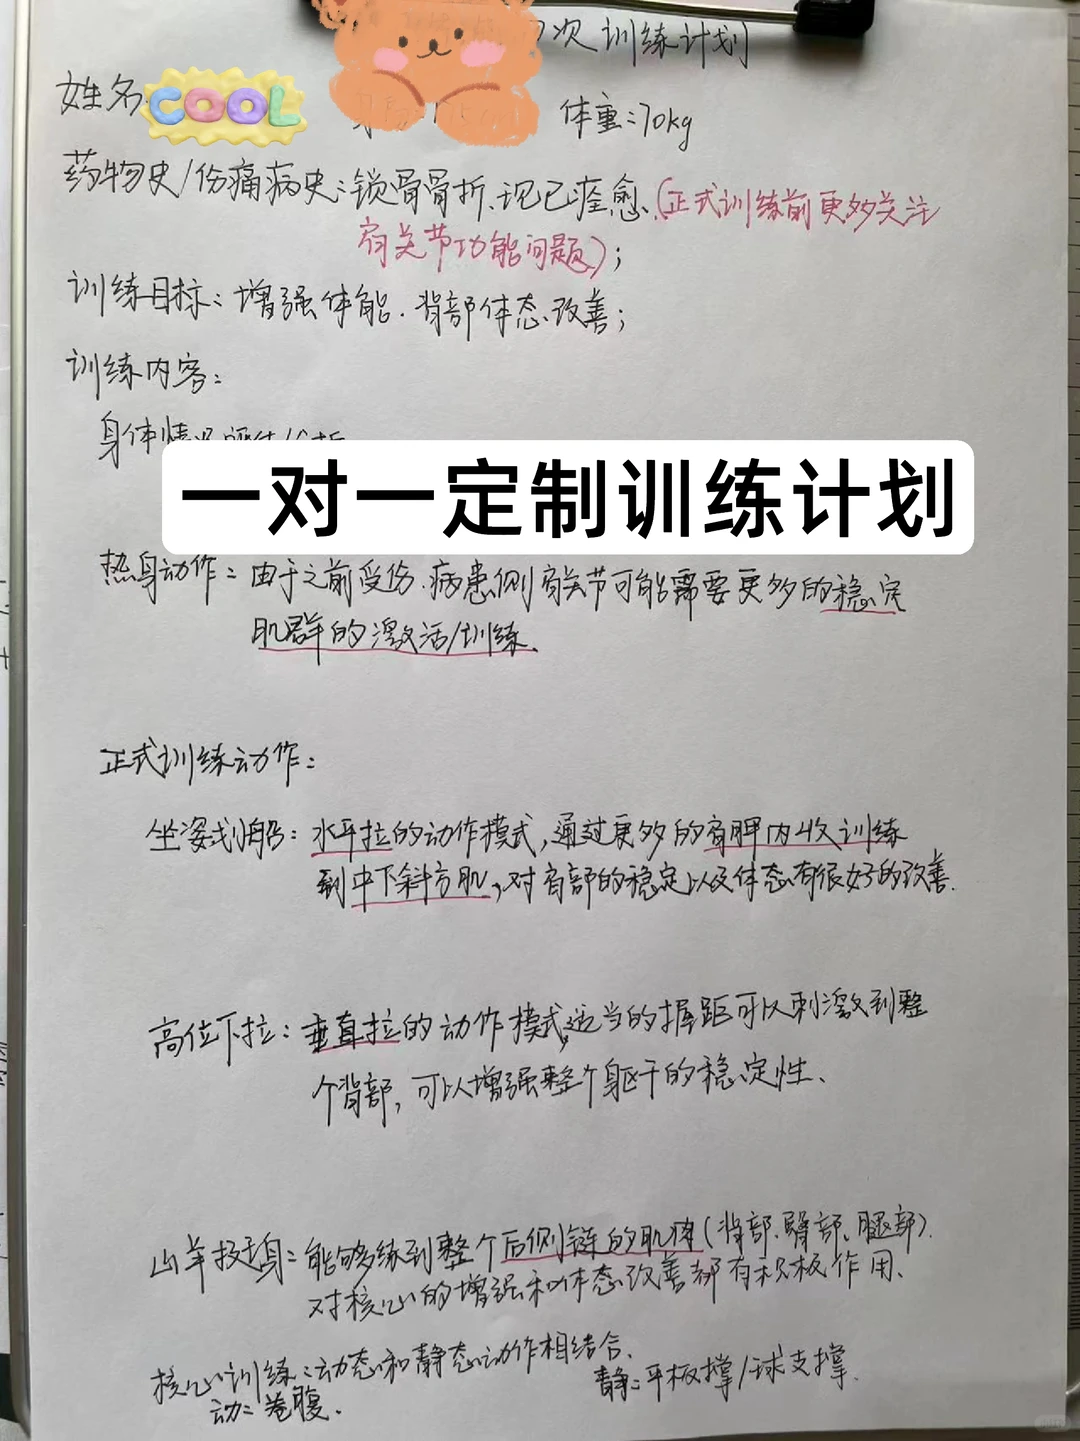 次训练计划
姓名: COOL 体重:70kg
药物史/伤痛病史:锁骨骨折、现已痊愈、(正式训练前更多关注
肩关节功能问题);
训练目标:增强体能、背部体态改善;
训练内容:
身体情况
一对一定制训练计划
热身动作:由于之前受伤、病患侧肩关节可能需要更多的稳定
肌群的激活/训练、
正式训练动作:
坐姿划船:水平拉的动作模式,通过更多的肩胛内收训练
到中下斜方肌,对肩部的稳定以及体态有很好的改善.
高位下拉:垂直拉的动作模式,适当的握距可以刺激到整
个背部,可以增强整个躯干的稳定性、
山羊挺身:能够练到整个后侧链的肌肉(背部、臀部、腿部).
对核心的增强和体态改善都有积极作用、
核心训练:动态和静态动作相结合、
动:卷腹. 静:平板撑/球支撑.